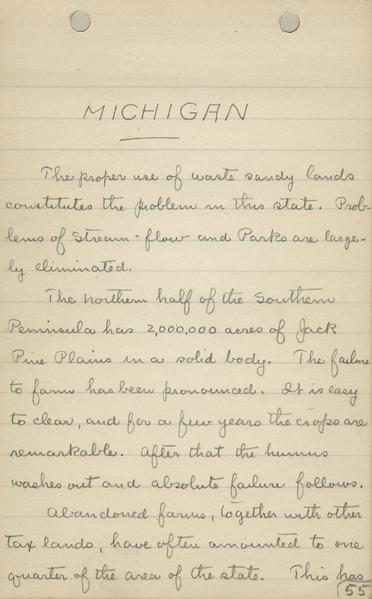 MICHIGAN
The proper use of waste sandy lands
constitutes the problem in this state. Prob-
lems of Stream-flow and Parks are large-
ly eliminated.
The northern half of the Southern
Peninsula has 2,000,000 acres of Jack
Pine Plains in a solid body. The failure
to farm has been pronounced. It is easy
to clear, and for a few years the crops are
remarkable. After that the humus
washes out and absolute failure follows.
Abandoned farms, together with other
tax lands, have often amounted to one
quarter of the area of the state. This has
55